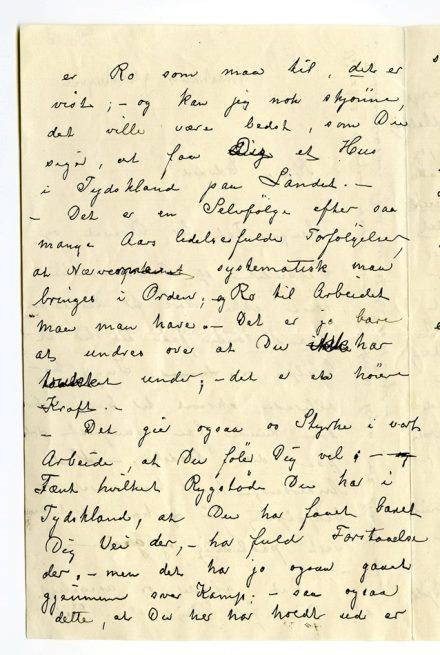 er Ro som maa til, det er
vist; - og kan jeg nok skjønne,
det ville være bedst, som Du
siger, at faa Dig et Hus
i Tydskland paa Landet. -
- Det er en Selvfølge efter saa
mange Aars lidelsesfulde Forfølgelser,
at systematisk maa
bringes i Orden; og Ro til Arbeidet
maa man have. - Det er jo bare
at undres over at Du ikke har
under; - det er en høiere
Kraft. -
- Det gir ogsaa os Styrke i vort
Arbeide, at Du føler Dig vel; -
Tænk hvilket Rygstøde Du har i
Tydskland, at Du har faaet banet
Dig Vei der, - har fuld Forstaaelse
der, - men det har jo ogsaa gaaet
gjennem svær Kamp; - saa ogsaa
dette, at Du her har holdt ud er